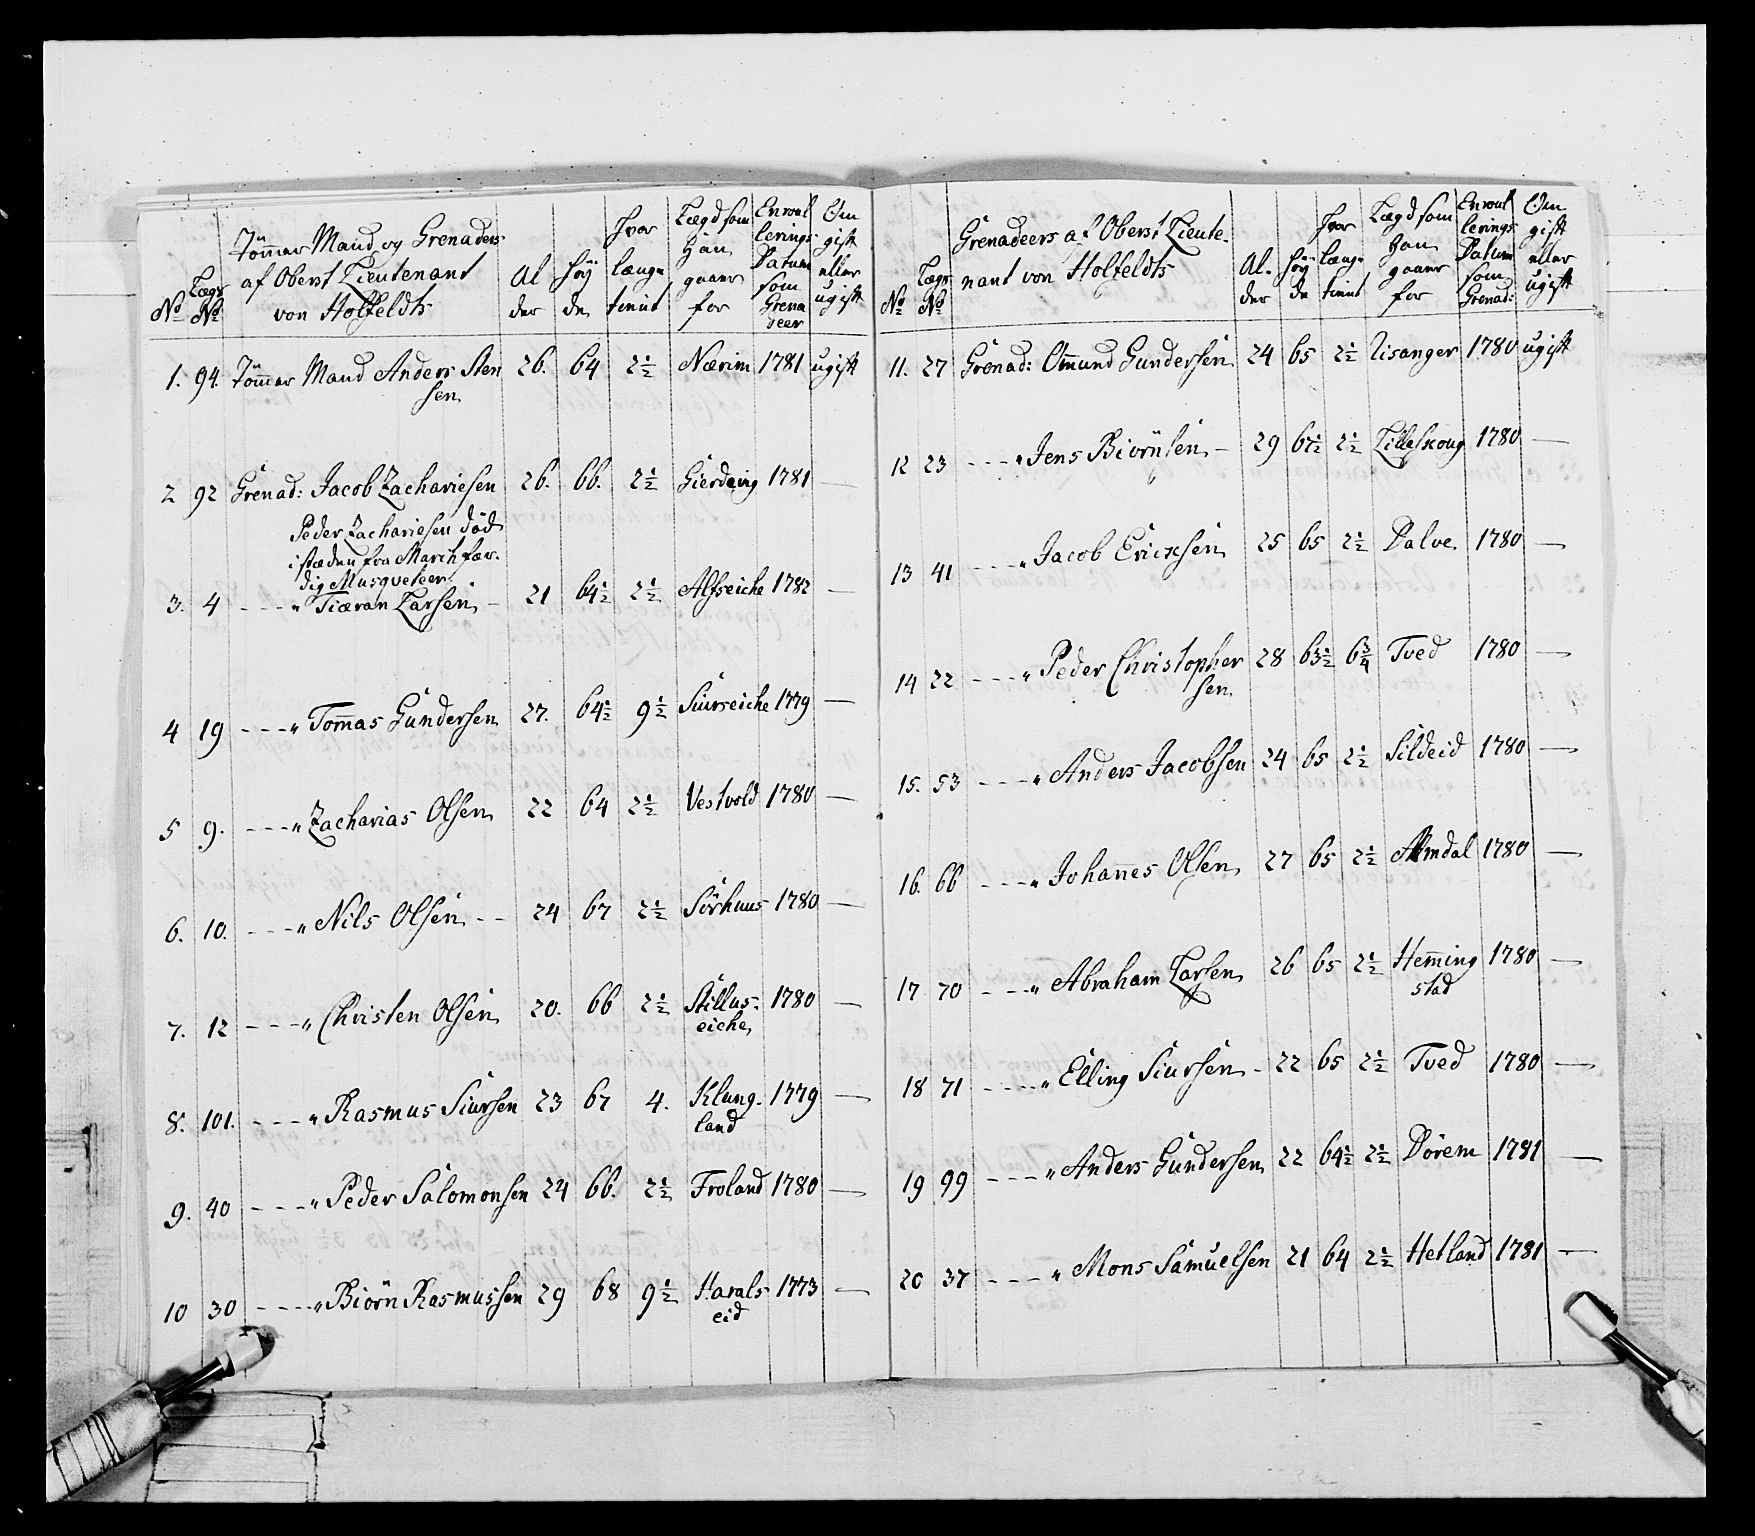 No Lægs No Tömmer Mand og Grenaders af Oberst Lieutenant von Holfeldts Alder Höyde hvor længe tient Lægd som Han gaaer for Enroulerings Datum som Grenadeer Om gift eller ugift
1. 94. Tömmer Mand Anders Stensen 26. 64 2½ Nærim 1781 ugift
2 92 Grenad: Jacob Zachariesen 26. 66. 2½ Gierdeing 1781 —
Peder Zachariesen död
i stæden fra March fær-
dig Musqueteer.
3. 4 - - - " Tiæran Larsen - 21 64½ 2½ Alfseiche 1782 —
4 19 - - - " Tommas Gundersen 27. 64½ 9½ Siurseiche 1779 —
5 9. - - - " Zacharias Olsen 22 64 2½ Vestvold 1780 —
6. 10. - - - " Nils Olsen - - 24 67 2½ Sörhuus 1780 —
7. 12 - - - " Christen Olsen 20. 66 2½ Stillus-eiche 1780 —
8. 101. - - - " Rasmus Siursen 23 67 4. Klungland 1779 —
9. 40 - - - " Peder Salomonsen 24 66. 2½ Froland 1780 —
10 30 - - - " Biörn Rasmussen 29 68 9½ Haralseid 1773 —
No Lægs No Grenadeers af Oberst Lieutenant von Holfeldts Alder Höyde hvor længe tient Lægd som Han gaaer for Enroulerings Datum som Grenad: Om gift eller ugift
11. 27 Grenad: Ommund Gundersen 24 65 2½ Lisanger 1780 ugift
12 23 - - - " Jens Biörnsen - 29 67½ 2½ Lilleskoug 1780 —
13 41 - - - " Jacob Ericksen 25 65 2½ Dalve 1780 —
14 22 - - - " Peder Christophersen 28 63½ 6¾ Tved 1780 —
15. 53 - - - " Anders Jacobsen 24 65 2½ Sildeid 1780 —
16. 66 - - - " Johannes Olsen 27 65 2½ Amdal 1780 —
17 70 - - - " Abraham Larsen 26 65 2½ Hemmingstad 1780 —
18 71 - - - " Elling Siursen - 22 65 2½ Tved 1780 —
19 99 - - - " Anders Gundersen 22 64½ 2½ Dörem 1781 —
20 37 - - - " Mons Samuelsen 21 64 2½ Hetland 1781 —